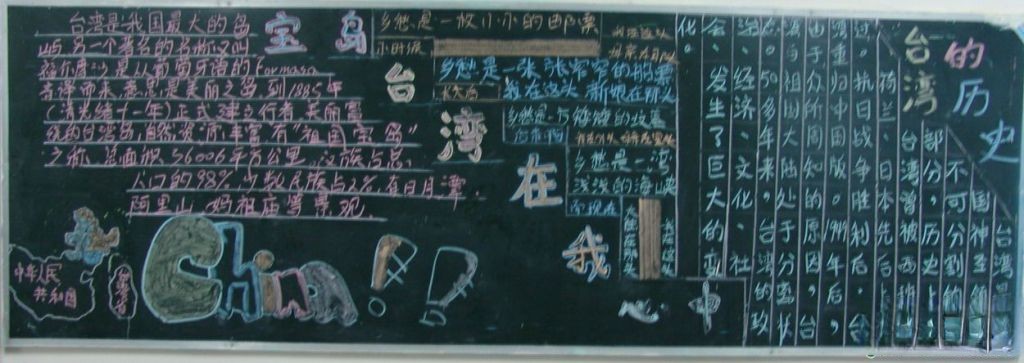 宝岛
台湾在我心中
台湾是我国最大的岛
屿,另一个著名的名称又叫
福尔摩沙是从葡萄牙语的Formosa
音译而来,意思是美丽之岛,到1885年
(清光绪十一年)正式建立行省,美丽富
饶的台湾岛,自然资源丰富有"祖国宝岛"
之称,总面积36006平方公里,汉族占总
人口的98%,少数民族占2%,有日月潭、
阿里山、妈祖庙等景观。
中华人民
共和国
China!!
乡愁是一枚小小的邮票
小时候
乡愁是一张窄窄的船票
长大后
我在这头 新娘在那头
乡愁是一方矮矮的坟墓
后来啊
乡愁是一湾
浅浅的海峡
而现在
台湾的历史
台湾
国神圣
不可分割的领
部分,历史上
台湾曾被西班
荷兰、日本先后
过。抗日战争胜利后,
重归中国版。1949年后,
由于众所周知的原因,台
湾与祖国大陆处于分离状
态。50多年来,台湾的政
治、经济、文化、社
会、发生了巨大的变
化。